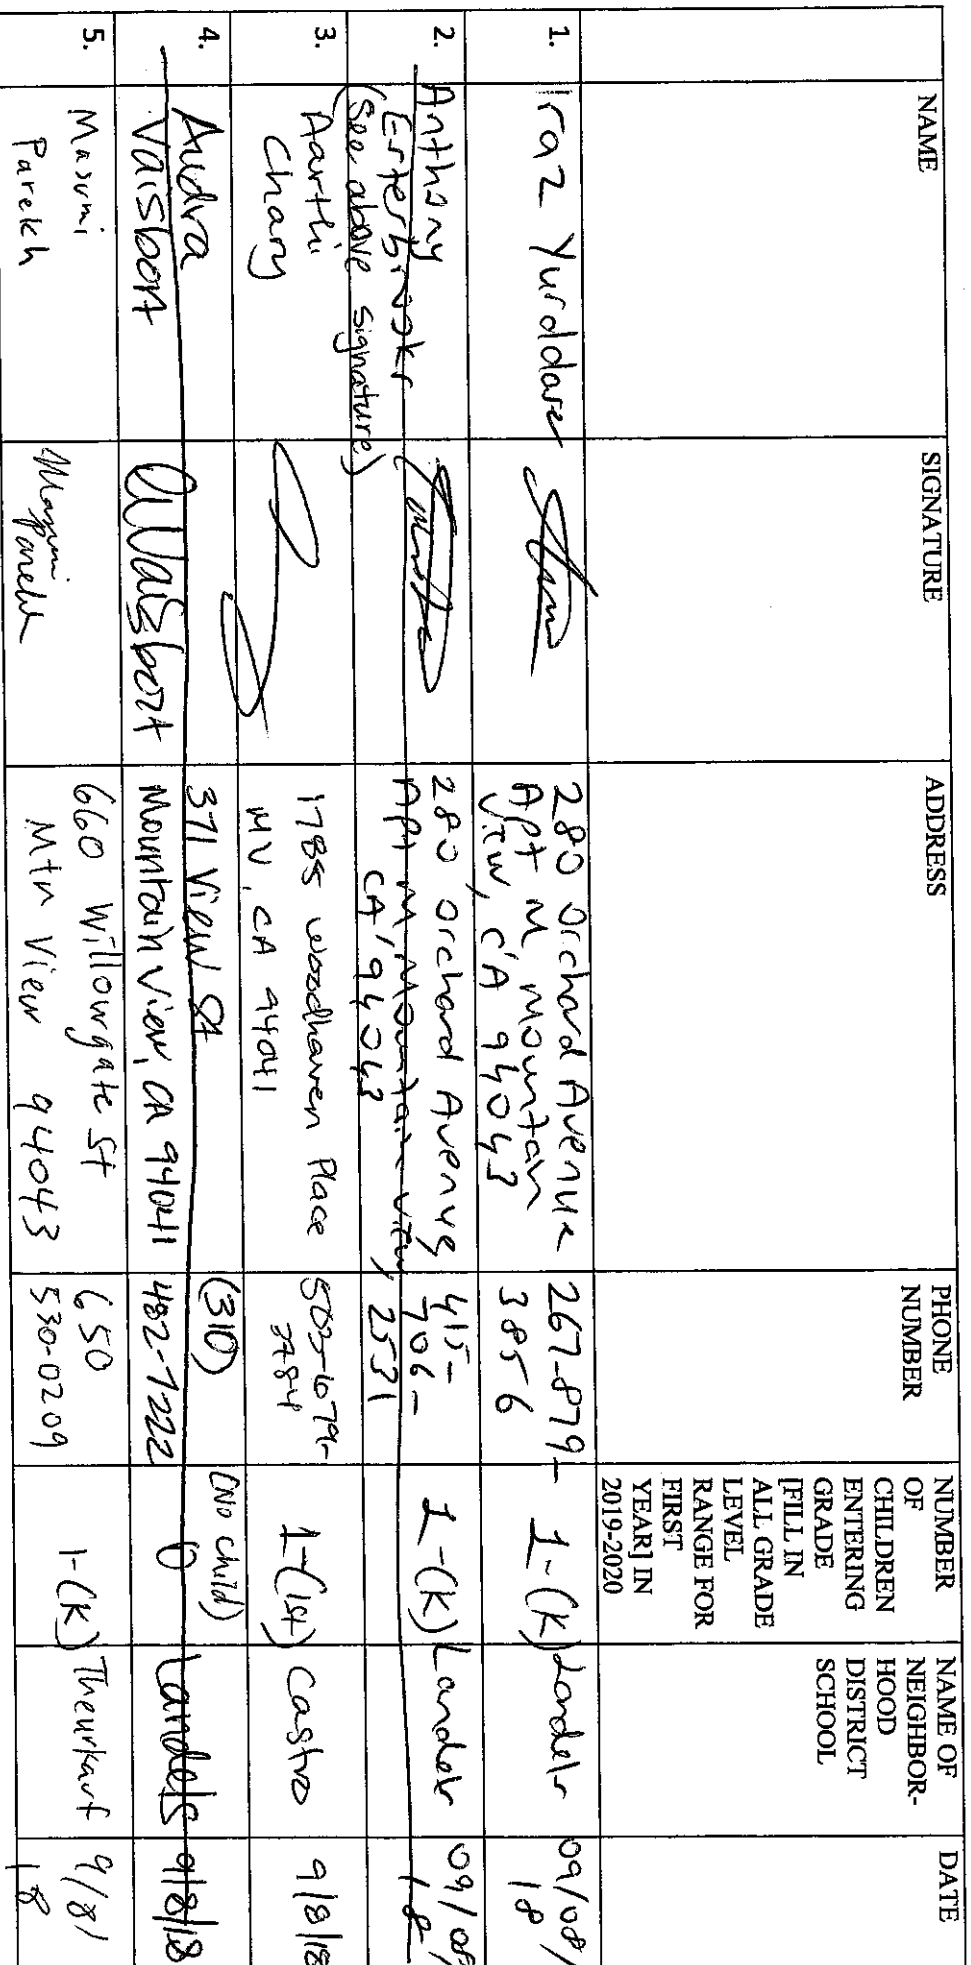 NAME
SIGNATURE
ADDRESS
PHONE
NUMBER
NUMBER
OF
CHILDREN
ENTERING
GRADE
[FILL IN
ALL GRADE
LEVEL
RANGE FOR
FIRST
YEAR] IN
2019-2020
NAME OF
NEIGHBOR-
HOOD
DISTRICT
SCHOOL
DATE
1.
Iraz
280 Orchard Avenue
Apt M, Mountain
View, CA 94043
267-879-
3856
1-(K)
Landels
09/08/
18
2.
Anthony
(See above signature)
280 Orchard Avenue
Apt M, Mountain View,
CA, 94043
415-
706-
2531
1-(K)
Landels
09/08/
18
3.
Aarthi
Chary
1785 Woodhaven Place
MV, CA 94041
1-(1st)
Castro
9/8/18
4.
Audra
Vaisbort
AVaisbort
371 View St
Mountain View, CA 94041
(310)
482-7222
(No child)
0
Landels
9/8/18
5.
Masumi
Parekh
Masumi
Parekh
660 Willowgate St
Mtn View 94043
650
530-0209
1-(K)
Theurkauf
9/8/
18